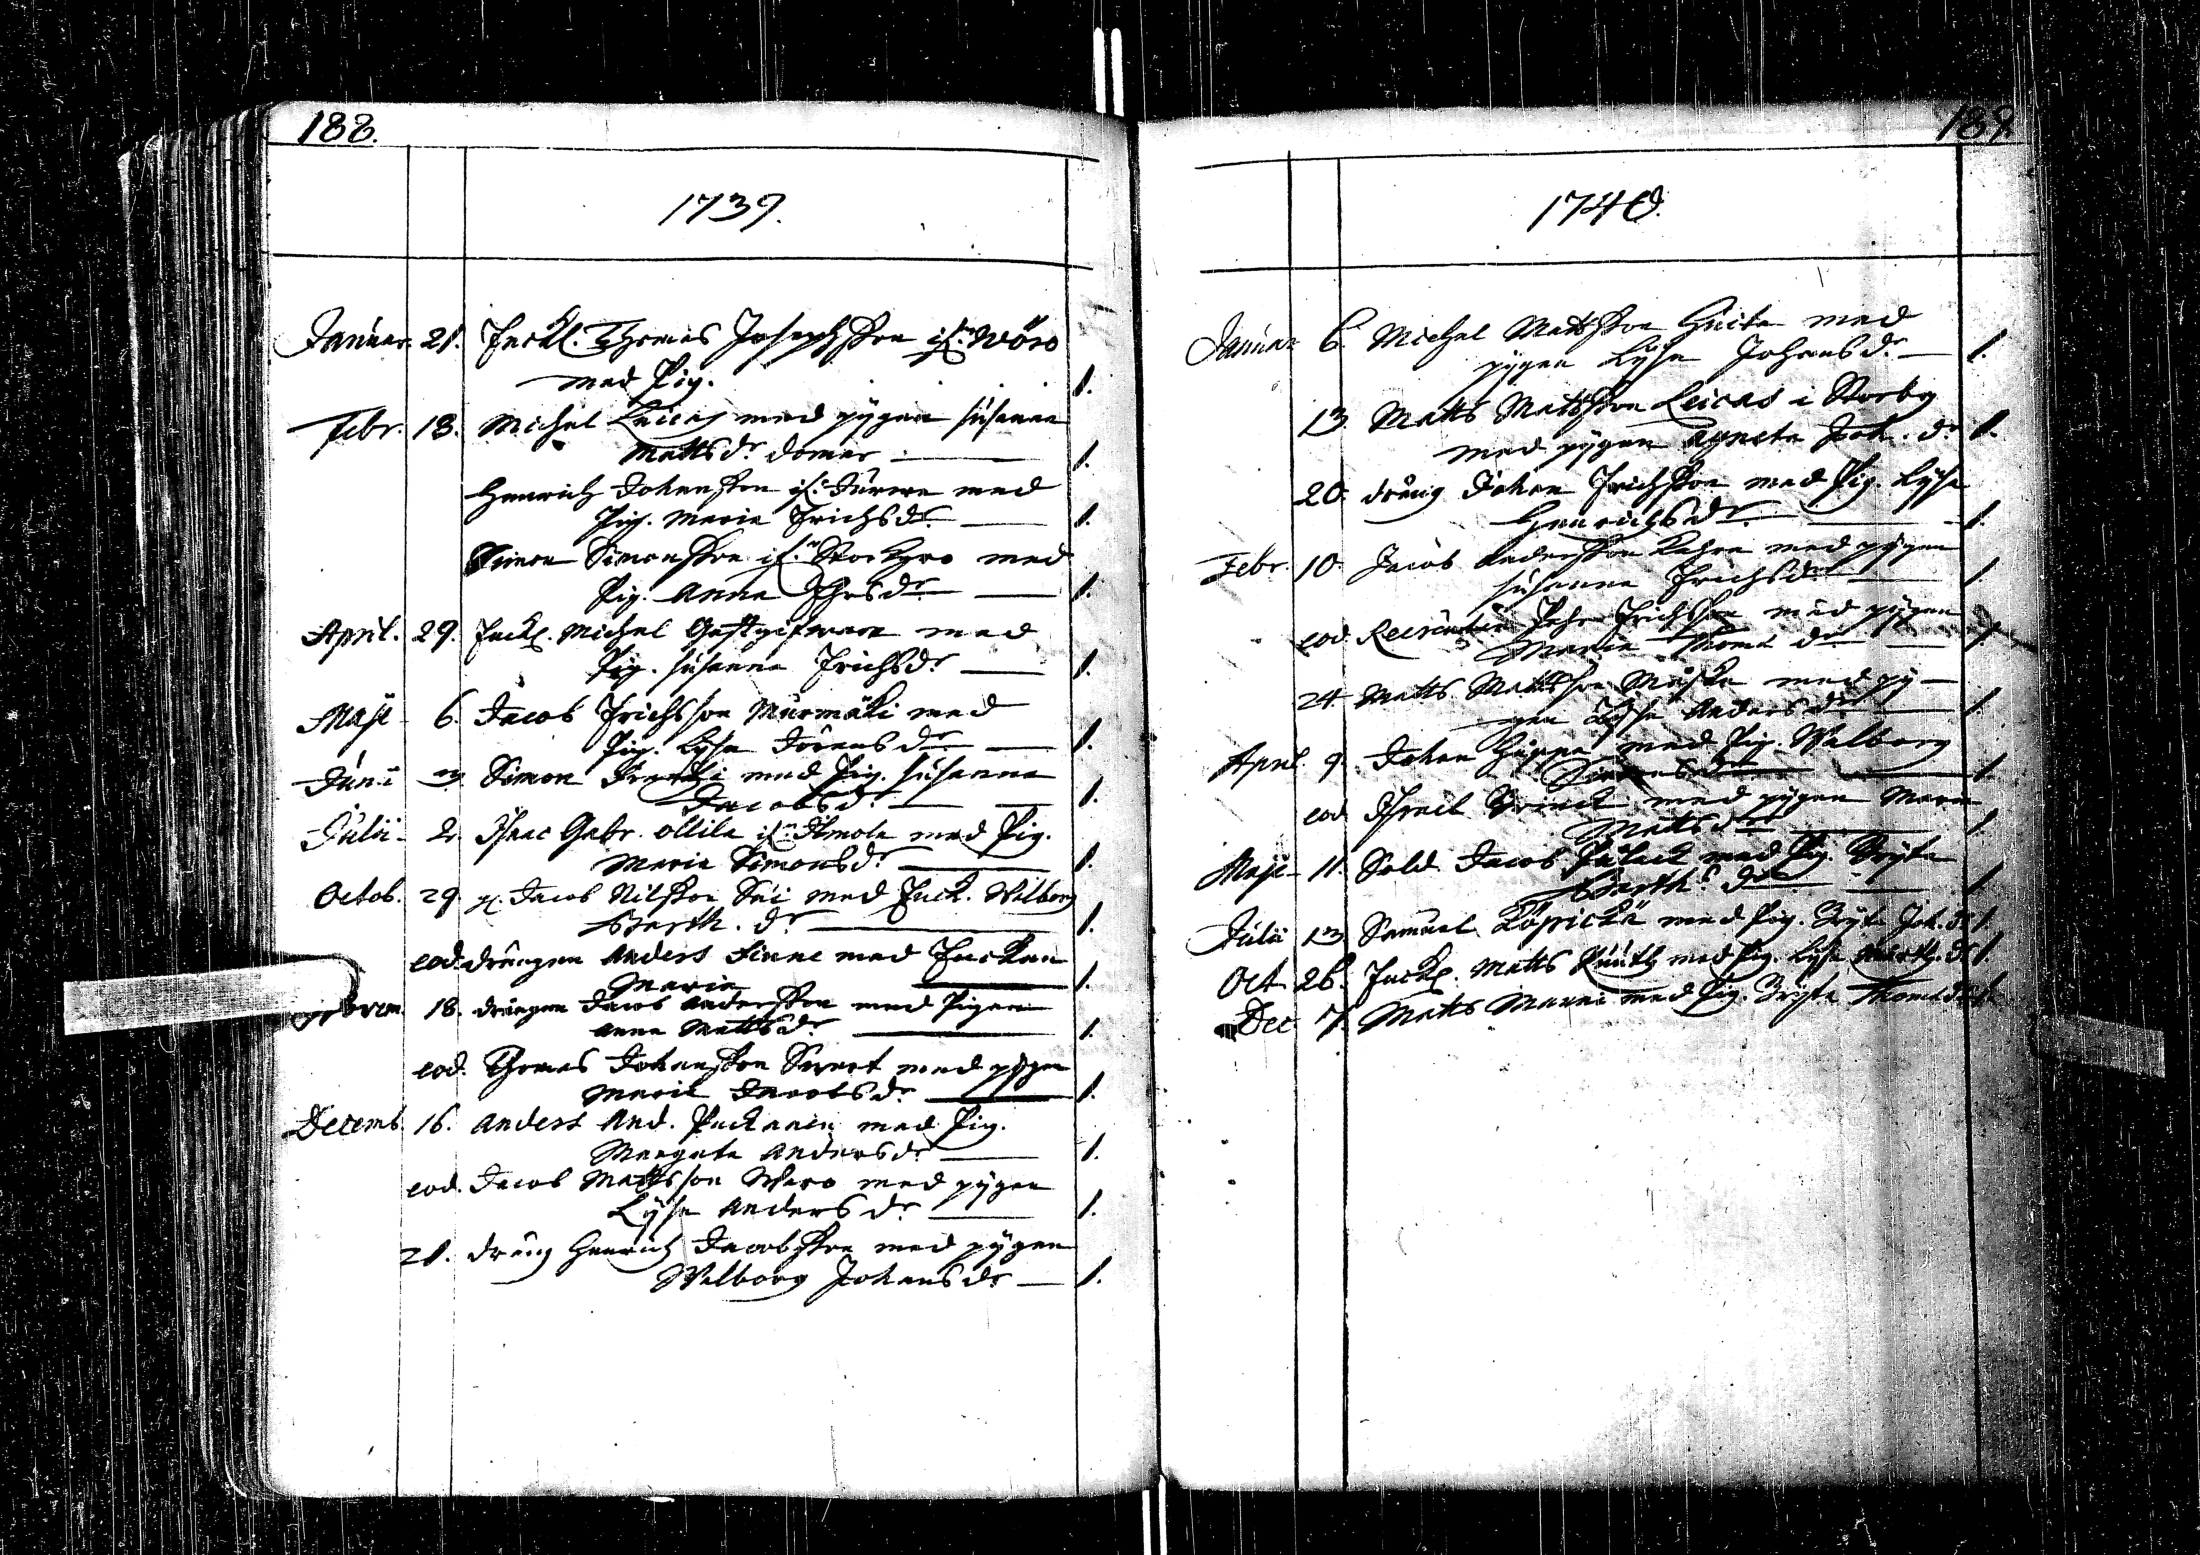 188.
1739.
Januar. 21. Enckl. Thomas Josephsson if:n Wöro
med Pig. 1.
Febr. 13. Michel Luicas med pygan Susanna
Matts dr. 1.
Henrich Johansson if:n med
Pig. Maria Erichs dr. 1.
Simon Simonsson if:n Storkyro med
Pig. Anna dr. 1.
April. 29. Enckl. Michel med
Pig. Susanna Erichs dr. 1.
Maji 6. Jacob Erichsson Murmäki med
Pig. Lysa Jörens dr. 1.
Junii 3. Simon med Pig. Susanna
Jacobs dr. 1.
Julii 2. Isaac Gabr. Ollila if:n Ilmola med Pig.
Maria Simons dr. 1.
Octob. 29. Jacob Nilsson med Enck. Walborg
Barth. dr. 1.
eod. drängen Anders Finne med Enckan
Maria 1.
18. drängen Jacob Andersson med Pigan
Anna Matts dr. 1.
eod. Thomas Johansson med pygan
Maria Jacobs dr. 1.
Decemb. 16. Anders And. med Pig.
Margeta Anders dr. 1.
eod. Jacob Mattsson med pygan
Lysa Anders dr. 1.
21. dräng Henrich Jacobsson med pygan
Walborg Johans dr. 1.
189.
1740.
Januar 6. Michel Mattsson med
pygan Lysa Johans dr. 1.
13. Matts Mattsson Leicas i Storby
med pygan Agneta Joh. dr. 1.
20. dräng Johan Erichsson med Pig. Lysa
Henrichs dr. 1.
Febr. 10. Jacob Andersson med pygan
Susanna Erichs dr. 1.
eod. Pehr Erichsson med pygan
Maria Thoma dr. 1.
24. Matts Mattsson med py-
gan Lysa Anders dr. 1.
April. 9. Johan med Pig. Walborg
1.
eod. Israel med pygan Maria
Matts dr. 1.
Maji 11. Sold. Jacob med Pig. Bryta
Barth. dr. 1.
Julii 13. Samuel med Pig. Bryta Joh. dr. 1.
Oct 26. Enckl. Matts med Pig. Lysa dr. 1.
Dec. 7. Matts med Pig. Bryta Thoma dr. 1.